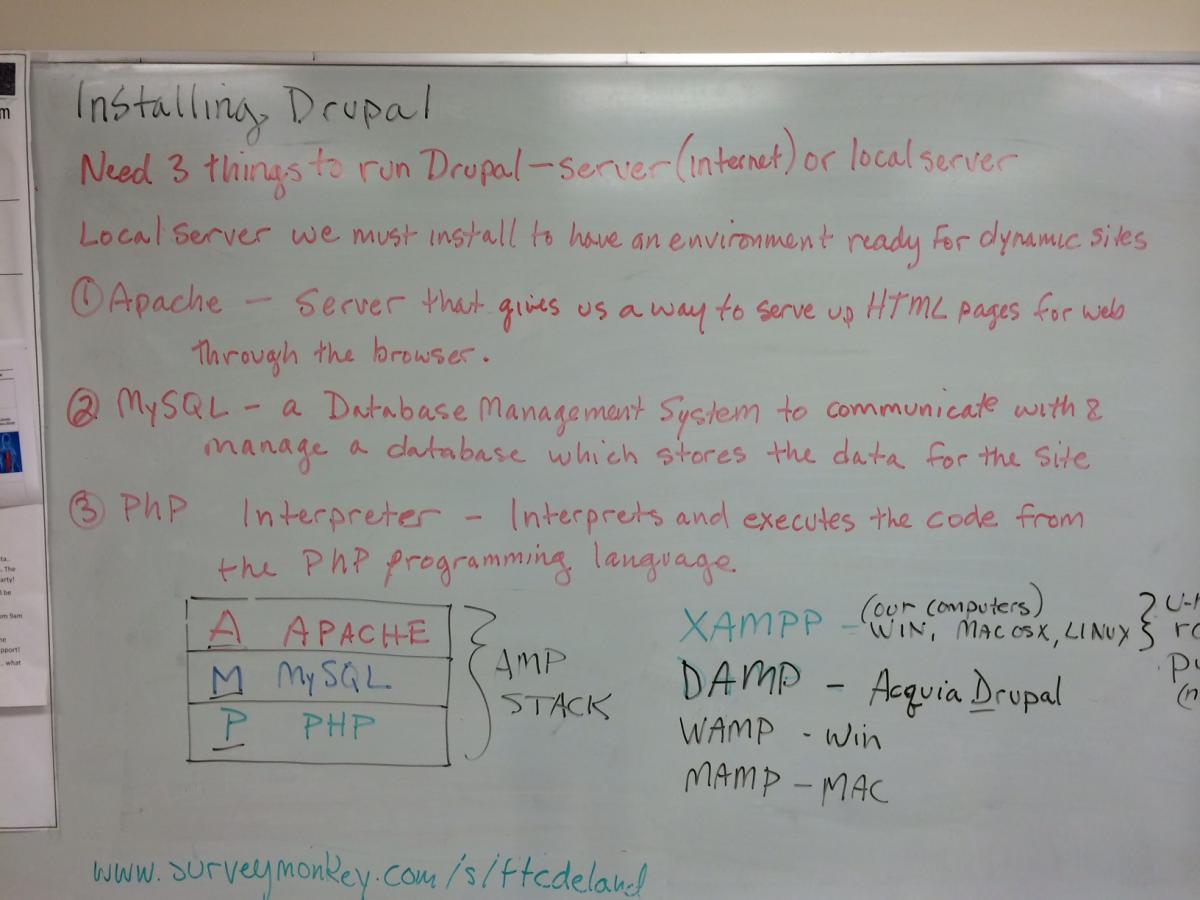 Installing Drupal
Need 3 things to run Drupal - server (internet) or local server
Local server we must install to have an environment ready for dynamic sites
① Apache - Server that gives us a way to serve up HTML pages for web
through the browser.
② MySQL - a Database Management System to communicate with &
manage a database which stores the data for the site
③ PhP Interpreter - Interprets and executes the code from
the PhP programming language.
A APACHE
M MySQL
P PHP
AMP
STACK
XAMPP - (our computers)
WIN, MAC OSX, LINUX
DAMP - Acquia Drupal
WAMP - Win
MAMP - MAC
www.surveymonkey.com/s/ftcdeland